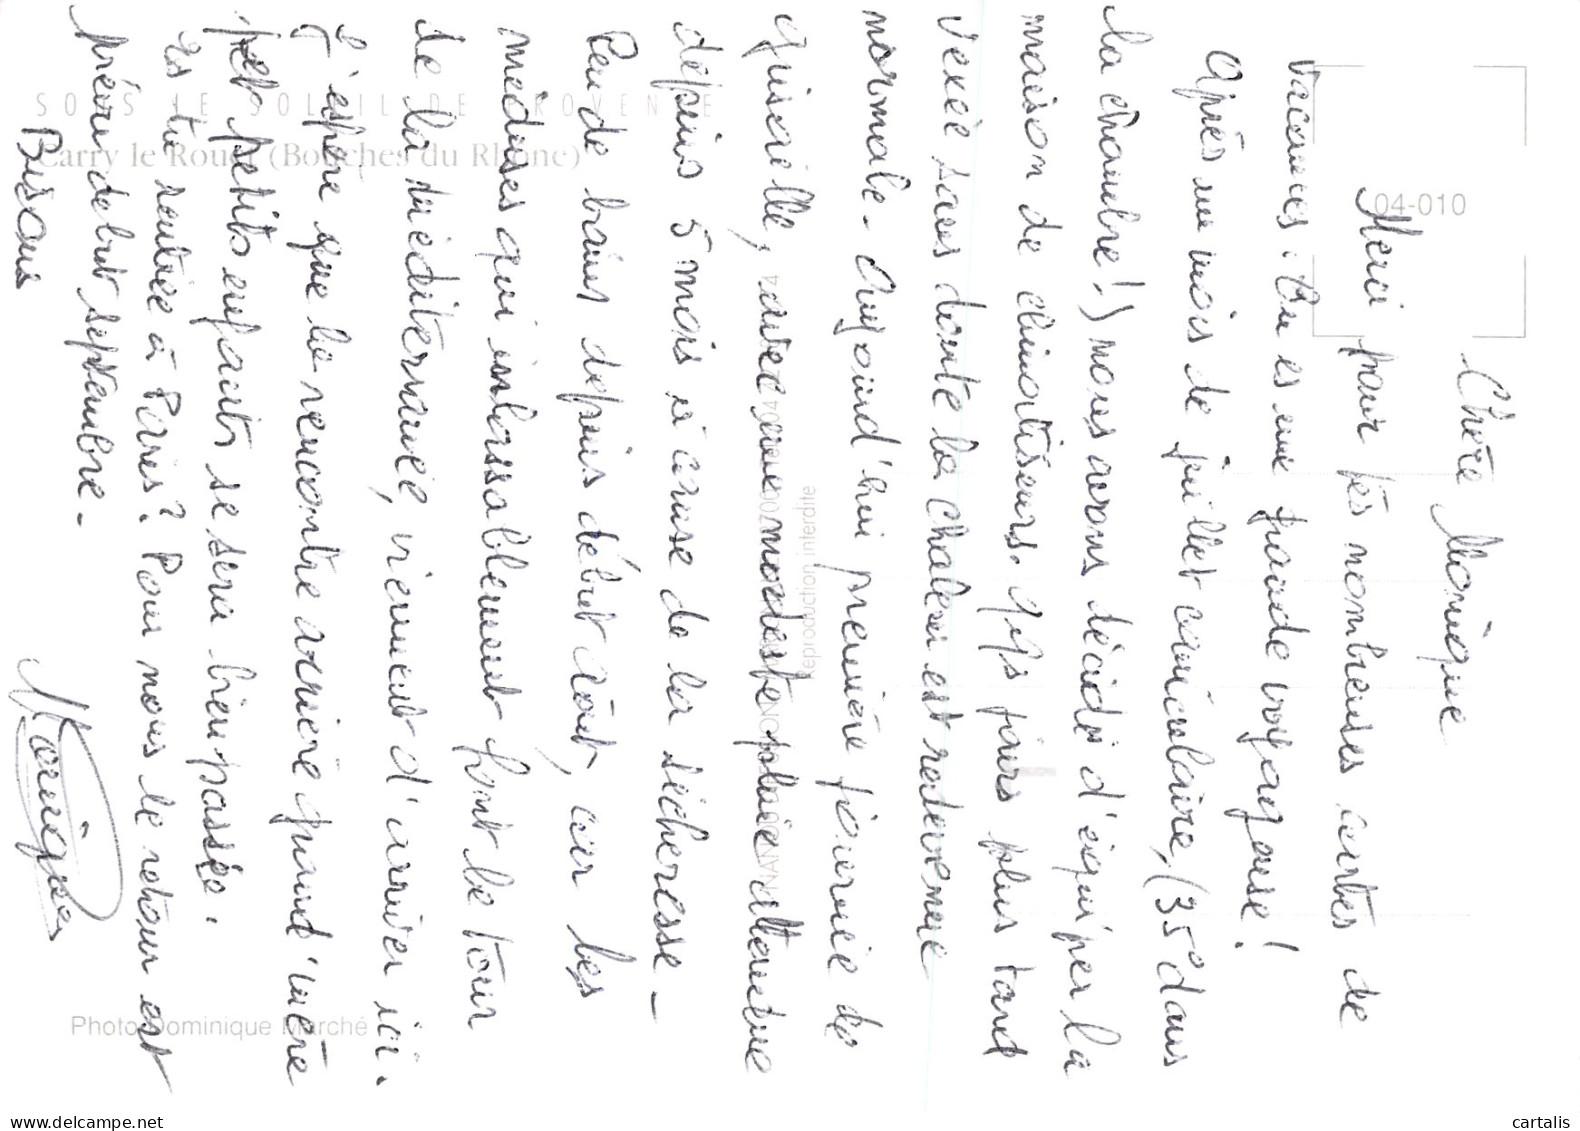 Chère Monique
Merci pour tes nombreuses cartes de
vacances. Tu es une grande voyageuse !
Après un mois de juillet caniculaire, (35° dans
la chambre !) nous avons décidé d'équiper la
maison de climatiseurs. 4 jours plus tard
vexée sans doute la chaleur est redevenue
normale - Aujourd'hui première journée de
grisaille, avec une modeste pluie attendue
depuis 5 mois à cause de la sécheresse -
Peu de bains depuis début août, car les
méduses qui inlassablement font le tour
de la méditerranée, viennent d'arriver ici.
J'espère que la rencontre arrière grand'mère
pet petits enfants se sera bien passée.
Es tu rentrée à Paris ? Pour nous le retour est
prévu début septembre -
Bisous
SOUS LE SOLEIL DE PROVENCE
Carry le Rouet (Bouches du Rhône)
04-010
Reproduction interdite
Photo Dominique Marché
www.delcampe.net
cartalis